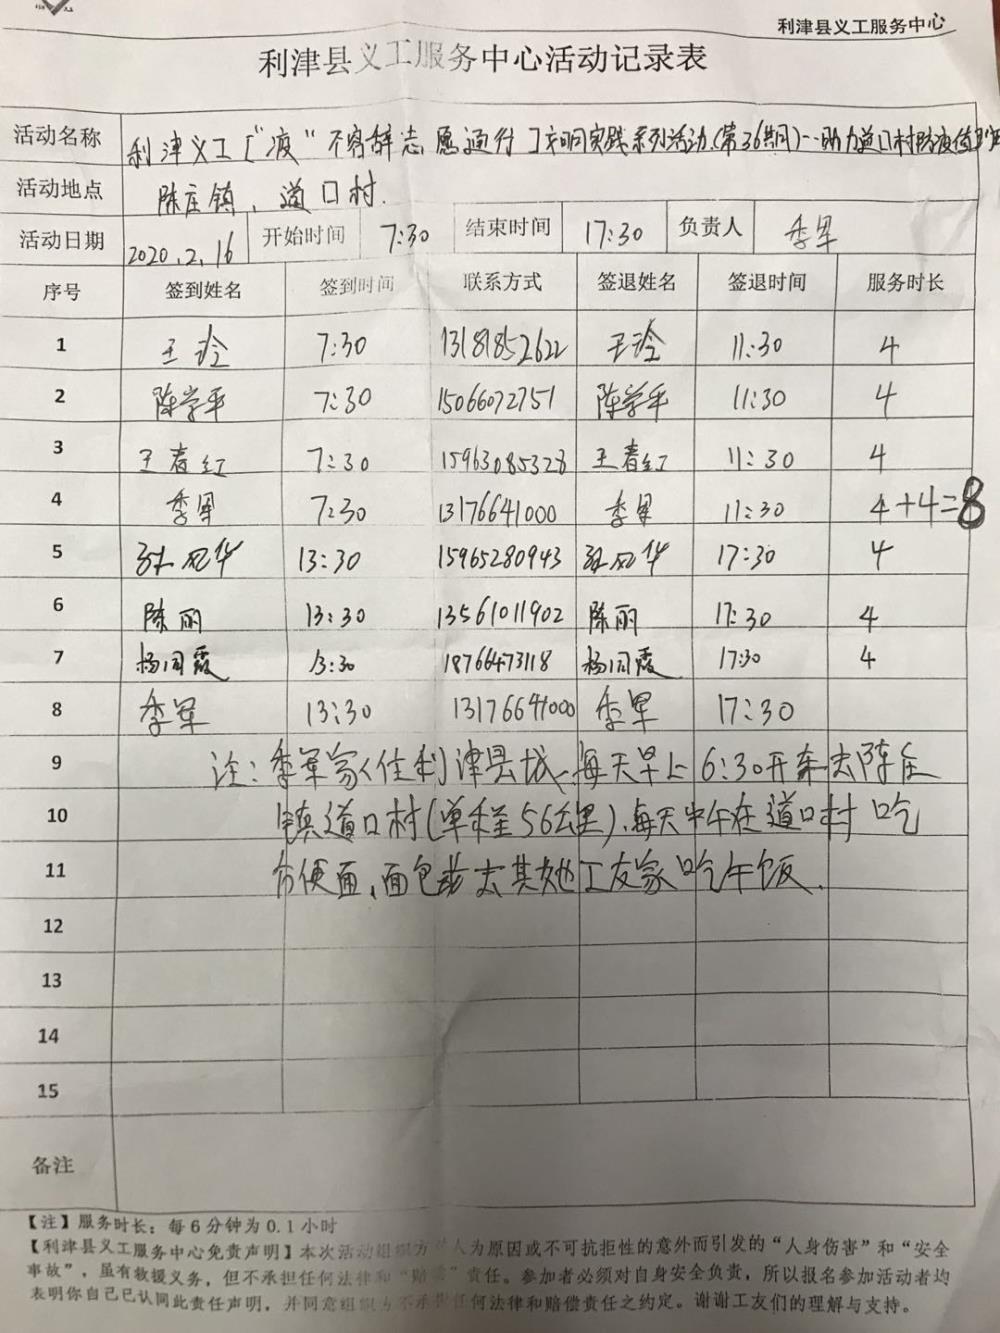 利津县义工服务中心
利津县义工服务中心活动记录表
活动名称 利津义工["疫"不容辞志愿通行]文明实践系列活动(第36期)--助力道口村防疫
活动地点 陈庄镇、道口村.
活动日期 2020.2.16 开始时间 7:30 结束时间 17:30 负责人 季军
序号 签到姓名 签到时间 联系方式 签退姓名 签退时间 服务时长
1 王玲 7:30 13181852622 王玲 11:30 4
2 陈学平 7:30 15066072751 陈学平 11:30 4
3 王春红 7:30 15963085328 王春红 11:30 4
4 季军 7:30 13176641000 季军 11:30 4+4=8
5 孙风华 13:30 15965280943 孙风华 17:30 4
6 陈丽 13:30 13561011902 陈丽 17:30 4
7 杨同霞 13:30 18766473118 杨同霞 17:30 4
8 季军 13:30 13176641000 季军 17:30
9 注:季军家住利津县城、每天早上6:30开车去陈庄
10 镇道口村(单程56公里)、每天中午在道口村吃
11 方便面、面包或去其她工友家吃午饭.
12
13
14
15
备注
【注】服务时长：每6分钟为0.1小时
【利津县义工服务中心免责声明】本次活动组织方 人为原因或不可抗拒性的意外而引发的“人身伤害”和“安全
事故”，虽有救援义务，但不承担任何法律和“赔偿”责任。参加者必须对自身安全负责，所以报名参加活动者均
表明你自己已认同此责任声明，并同意组织方不承担任何法律和赔偿责任之约定。谢谢工友们的理解与支持。